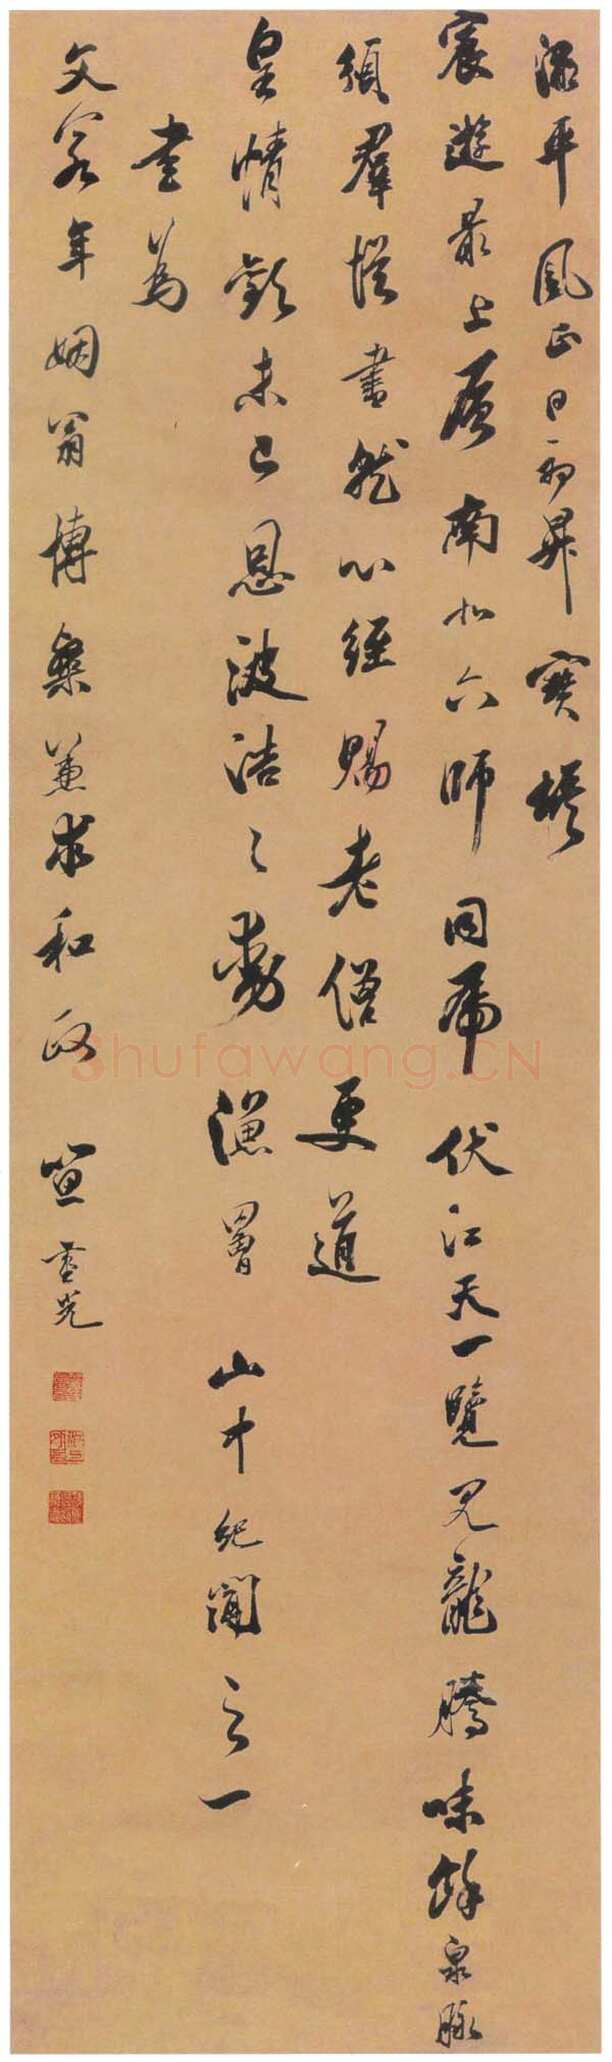 平風正日初昇寶塔
宸遊最上層南北六師同虎伏江天一覽見龍騰味餘泉脉
頒羣從書就心經賜老僧更道
皇情歡未已恩波浩〻動漁罾山中紀聞之一
書為
文年姻翁博粲兼求和政笪重光
Shufawang.CN